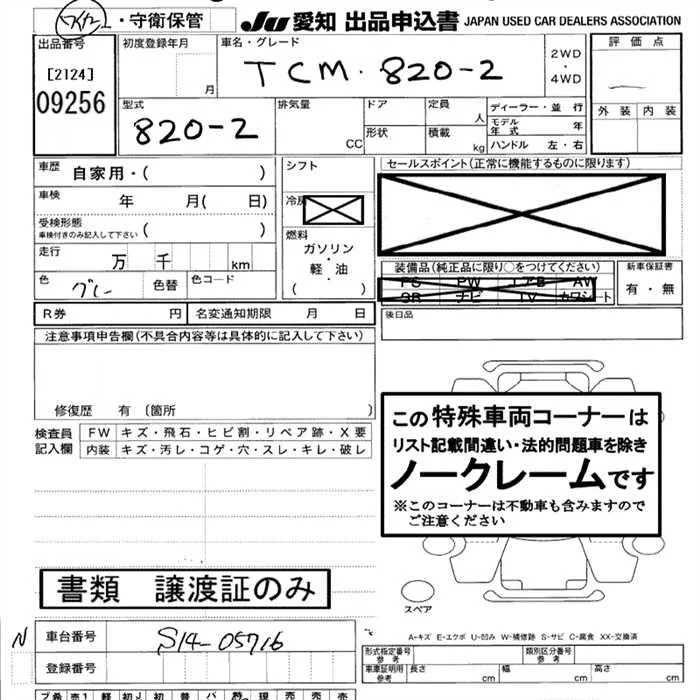 ・守衛保管 JU 愛知 出品申込書 JAPAN USED CAR DEALERS ASSOCIATION
出品番号 初度登録年月 車名・グレード 評価点
[2124] 月 TCM・820-2 2WD・4WD
09256 型式 排気量 ドア 定員 人 ディーラー・並行 外装 内装
820-2 CC 形状 積載 kg モデル年式 年
ハンドル 左・右
車歴 自家用・( ) シフト セールスポイント(正常に機能するものに限ります)
車検 年 月( 日) 冷房
受検形態 車検付きのみ記入して下さい ( ) 燃料
走行 万 千 km ガソリン・軽・油 ( ) 装備品(純正品に限り○をつけてください) 新車保証書
色 グレー 色替 色コード PS PW エアB AW 有・無
SR ナビ TV カワシート
R券 円 名変通知期限 月 日 後日品
注意事項申告欄(不具合内容等は具体的に記入して下さい)
修復歴 有 〔箇所 〕
検査員記入欄 FW キズ・飛石・ヒビ割・リペア跡・X要
内装 キズ・汚レ・コゲ・穴・スレ・キレ・破レ
この特殊車両コーナーは
リスト記載間違い・法的問題車を除き
ノークレームです
※このコーナーは不動車も含みますので
ご注意ください
書類 譲渡証のみ
スペア
N 車台番号 S14-05716
登録番号
A-キズ E-エクボ U-凹み W-補修跡 S-サビ C-腐食 XX-交換済
形式指定番号 参考 類別区分番号 参考
車庫証明用 参考 長さ cm 幅 cm 高さ cm